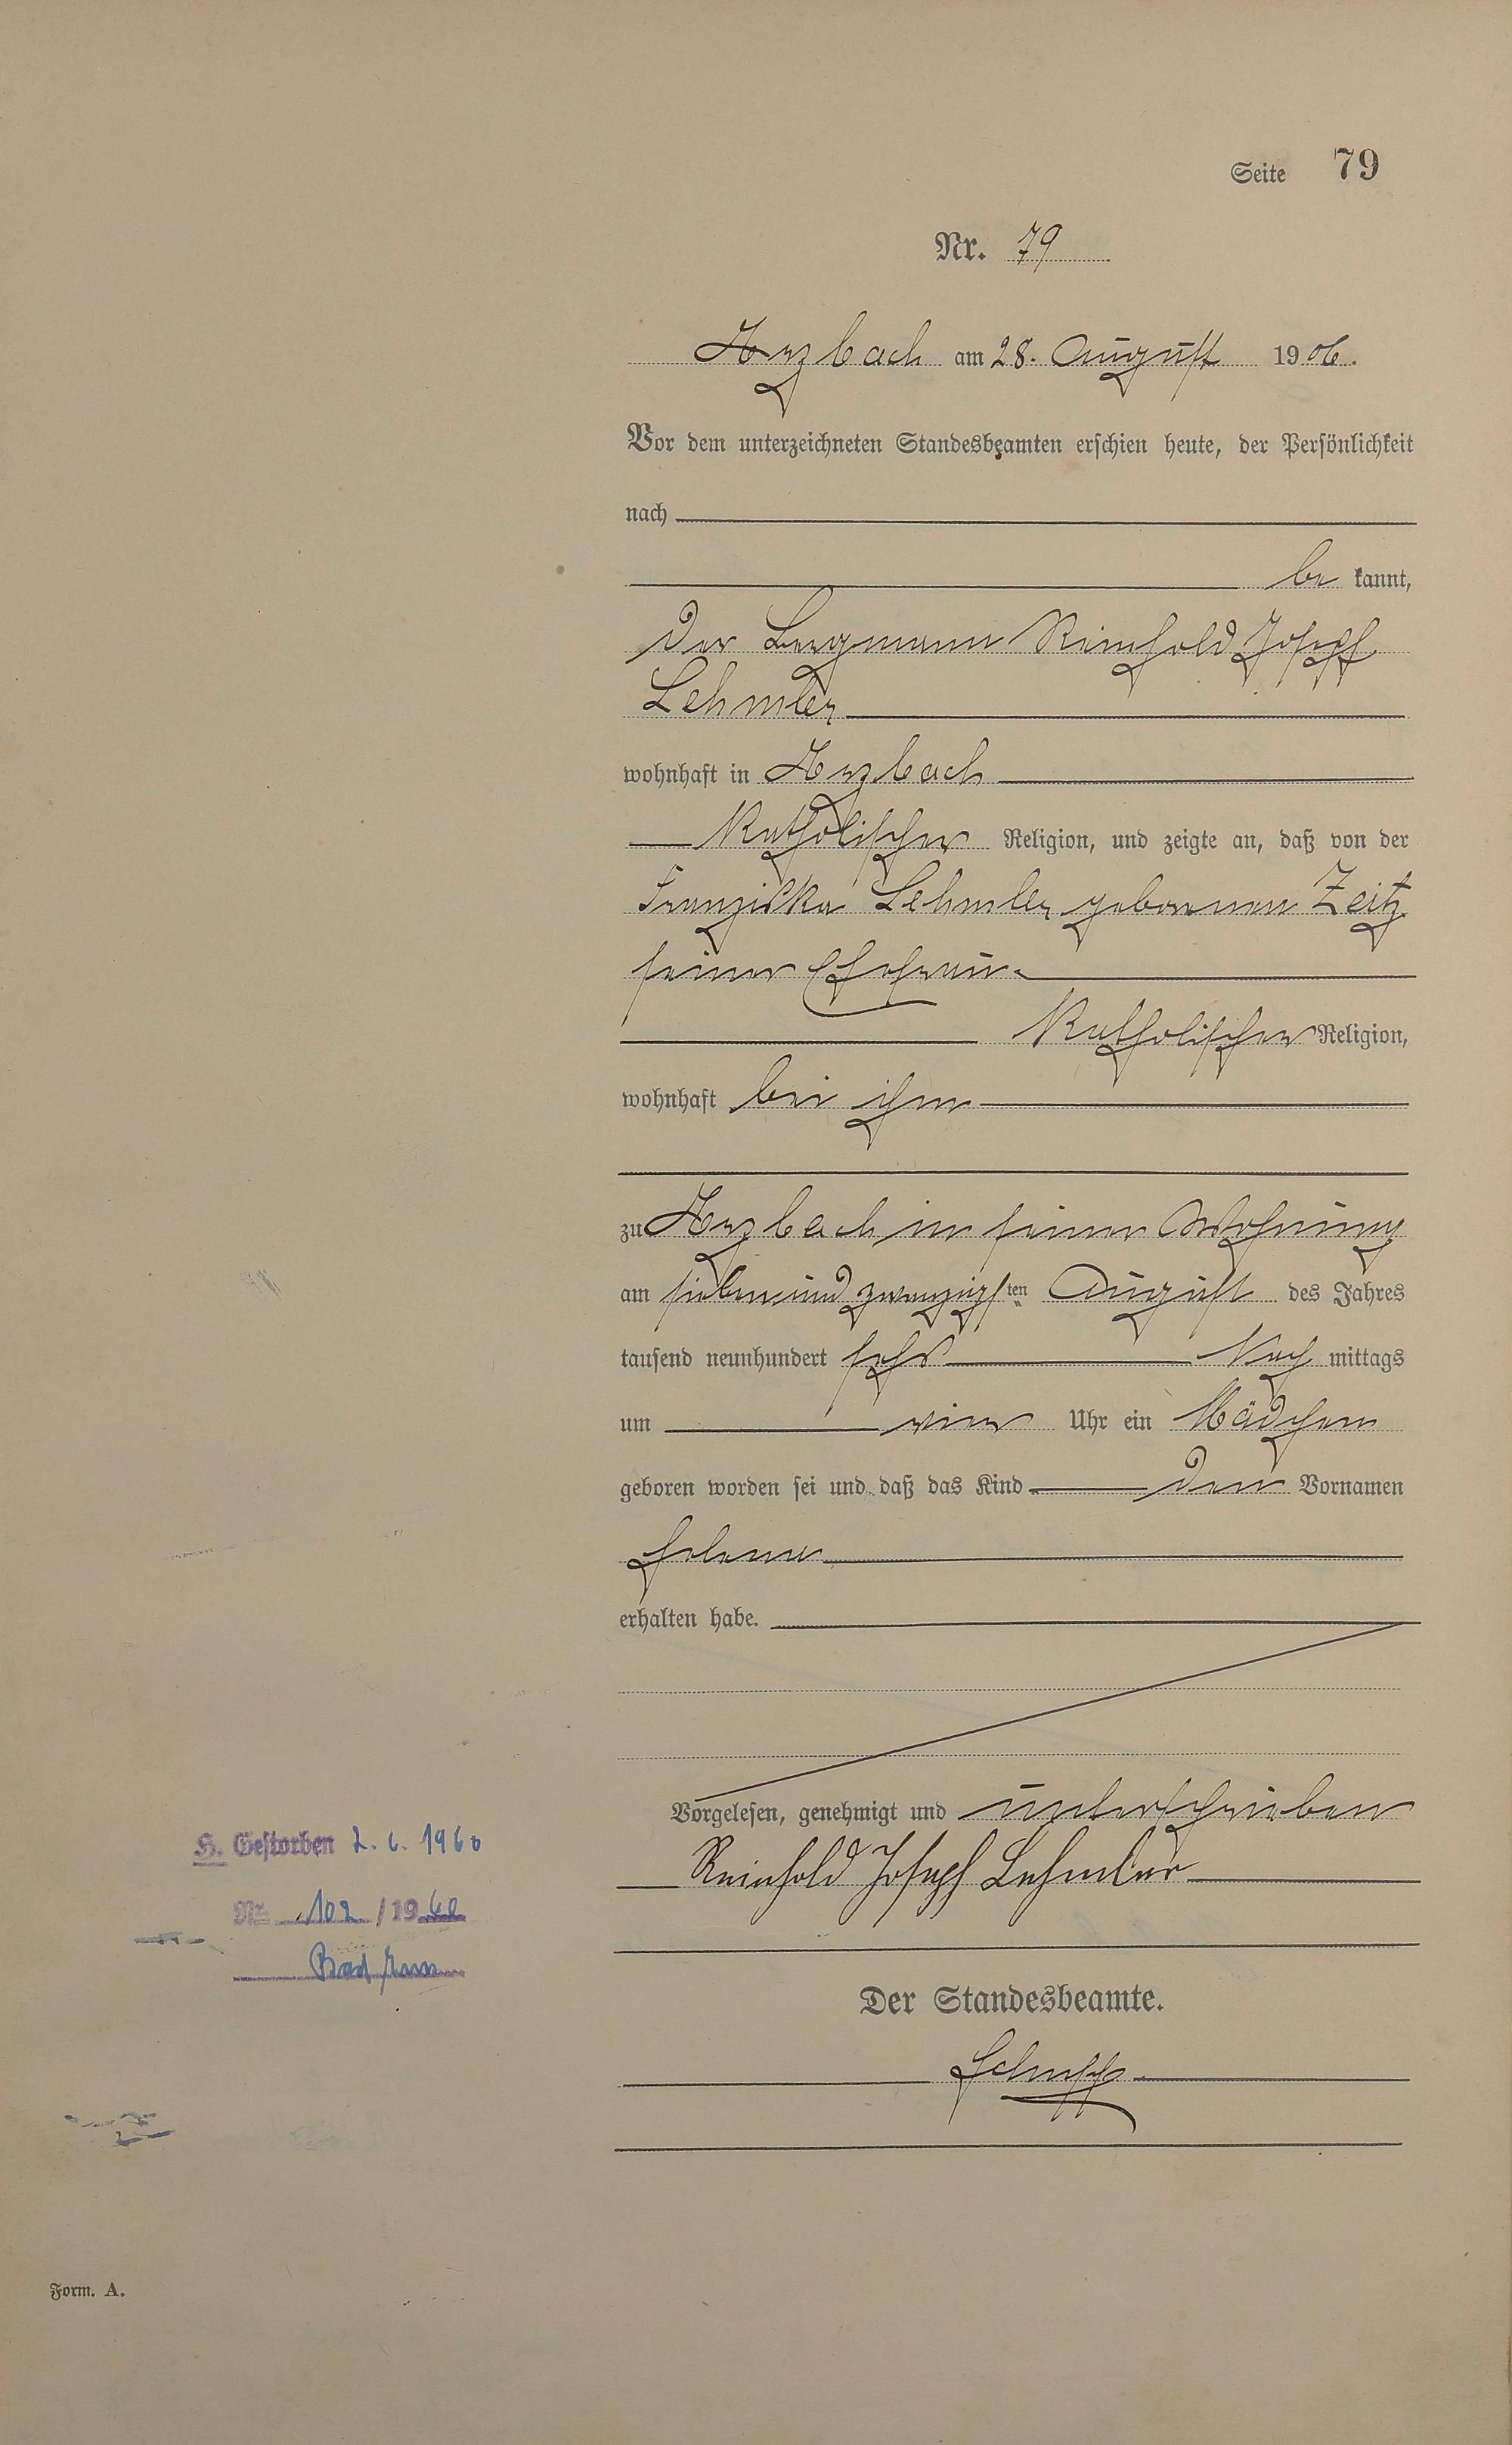 Seite 79
Nr. 79
Arzbach am 28. August 1906.
Vor dem unterzeichneten Standesbeamten erschien heute, der Persönlichkeit
nach
be kannt,
der Bergmann Reinhold Joseph
Lehmler
wohnhaft in Arzbach
katholischer Religion, und zeigte an, daß von der
Franziska Lehmler geborenen Zeitz
seiner Ehefrau
katholischer Religion,
wohnhaft bei ihm
zu Arzbach in seiner Wohnung
am siebenundzwanzigsten August des Jahres
tausend neunhundert sechs Nach mittags
um vier Uhr ein Mädchen
geboren worden sei und daß das Kind den Vornamen
Helena
erhalten habe.
Vorgelesen, genehmigt und unterschrieben
Reinhold Joseph Lehmler
H. Gestorben 2. 6. 1960
Nr. 102 / 1960
Bad Ems
Der Standesbeamte.
Schupp
Form. A.